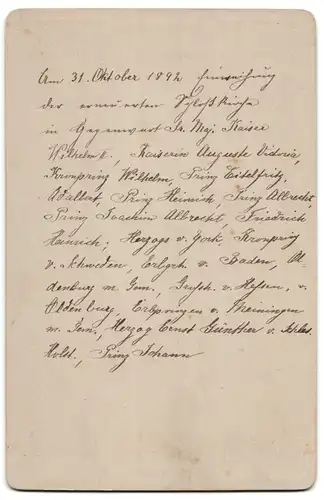 Am 31. Oktober 1892 Einweihung
der erneuerten Schloßkirche
in Gegenwart Sr. Maj. Kaiser
Wilhelm II., Kaiserin Auguste Victoria,
Kronprinz Wilhelm, Prinz Eitelfritz,
Adalbert, Prinz Heinrich, Prinz Albrecht,
Prinz Joachim Albrecht, Friedrich
Heinrich; Herzog v. York, Kronprinz
v. Schweden, Erbgrh. v. Baden, Ol-
denburg m. Gem., Großh. v. Hessen, v.
Oldenburg, Erbprinzen v. Meiningen
m. Gem., Herzog Ernst Günther v. Schles.
Holst., Prinz Johann